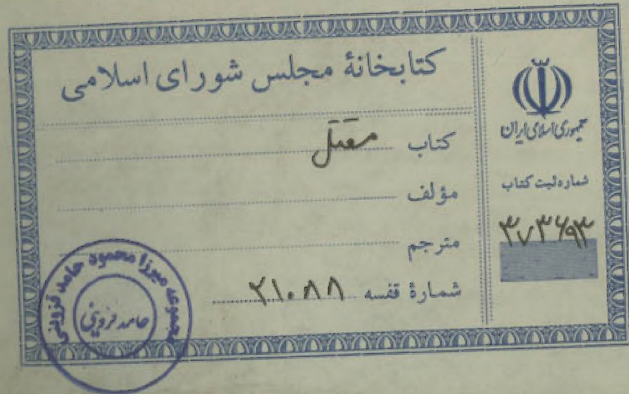 کتابخانهٔ مجلس شورای اسلامی
کتاب مقتل
مؤلف
مترجم
شمارهٔ قفسه ۲۱۰۸۸
جمهوری اسلامی ایران
شماره ثبت کتاب
۳۷۳۶۹۳
مجموعه میرزا محمود حامد قزوینی
حامد قزوینی